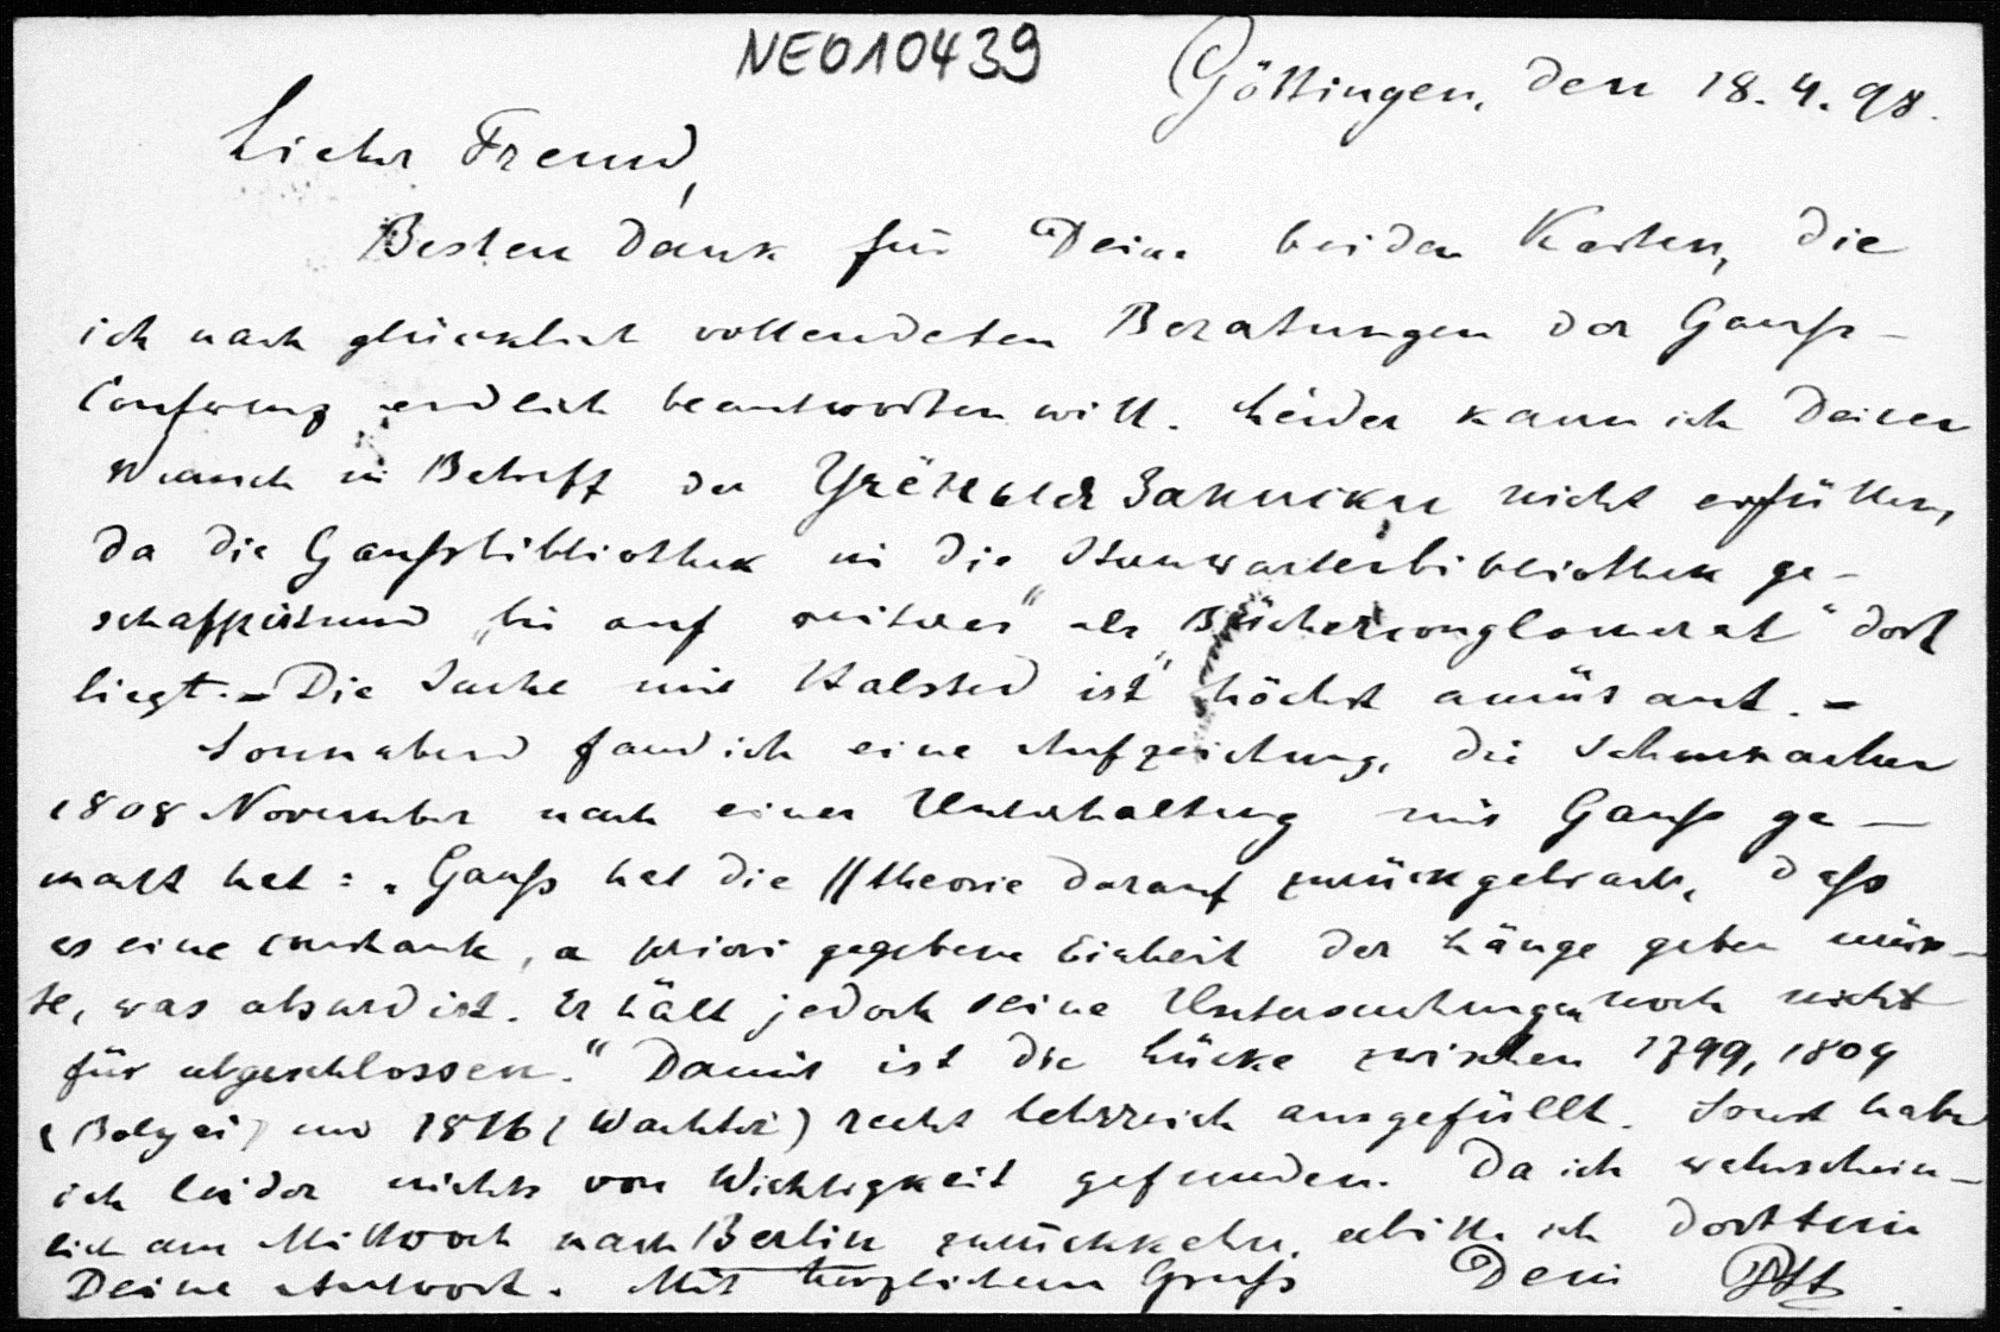 NE010439
Göttingen, den 18.4.98.
Lieber Freund,
Besten Dank für Deine beiden Karten, die
ich nach glücklich vollendeten Beratungen der Gauss-
Conferenz endlich beantworten will. Leider kann ich Deinen
Wunsch in Betreff der Учёныя Записки nicht erfüllen,
da die Gaussbibliothek in die Sternwartenbibliothek ge-
schafft ist und „bis auf weiteres" als „Bücherconglomerat" dort
liegt. – Die Sache mit Halsted ist höchst amüsant. –
Sonnabend fand ich eine Aufzeichnung, die Schumacher
1808 November nach einer Unterhaltung mit Gauss ge-
macht hat: „Gauss hat die //theorie darauf zurückgebracht, dass
es eine constante, a priori gegebene Einheit der Länge geben müss-
te, was absurd ist. Er hält jedoch seine Untersuchungen noch nicht
für abgeschlossen." Damit ist die Lücke zwischen 1799, 1804
(Bolyai) und 1816 (Wachter) recht lehrreich ausgefüllt. Sonst habe
ich leider nichts von Wichtigkeit gefunden. Da ich wahrschein-
lich am Mittwoch nach Berlin zurückkehre, erbitte ich dorthin
Deine Antwort. Mit herzlichem Gruss Dein